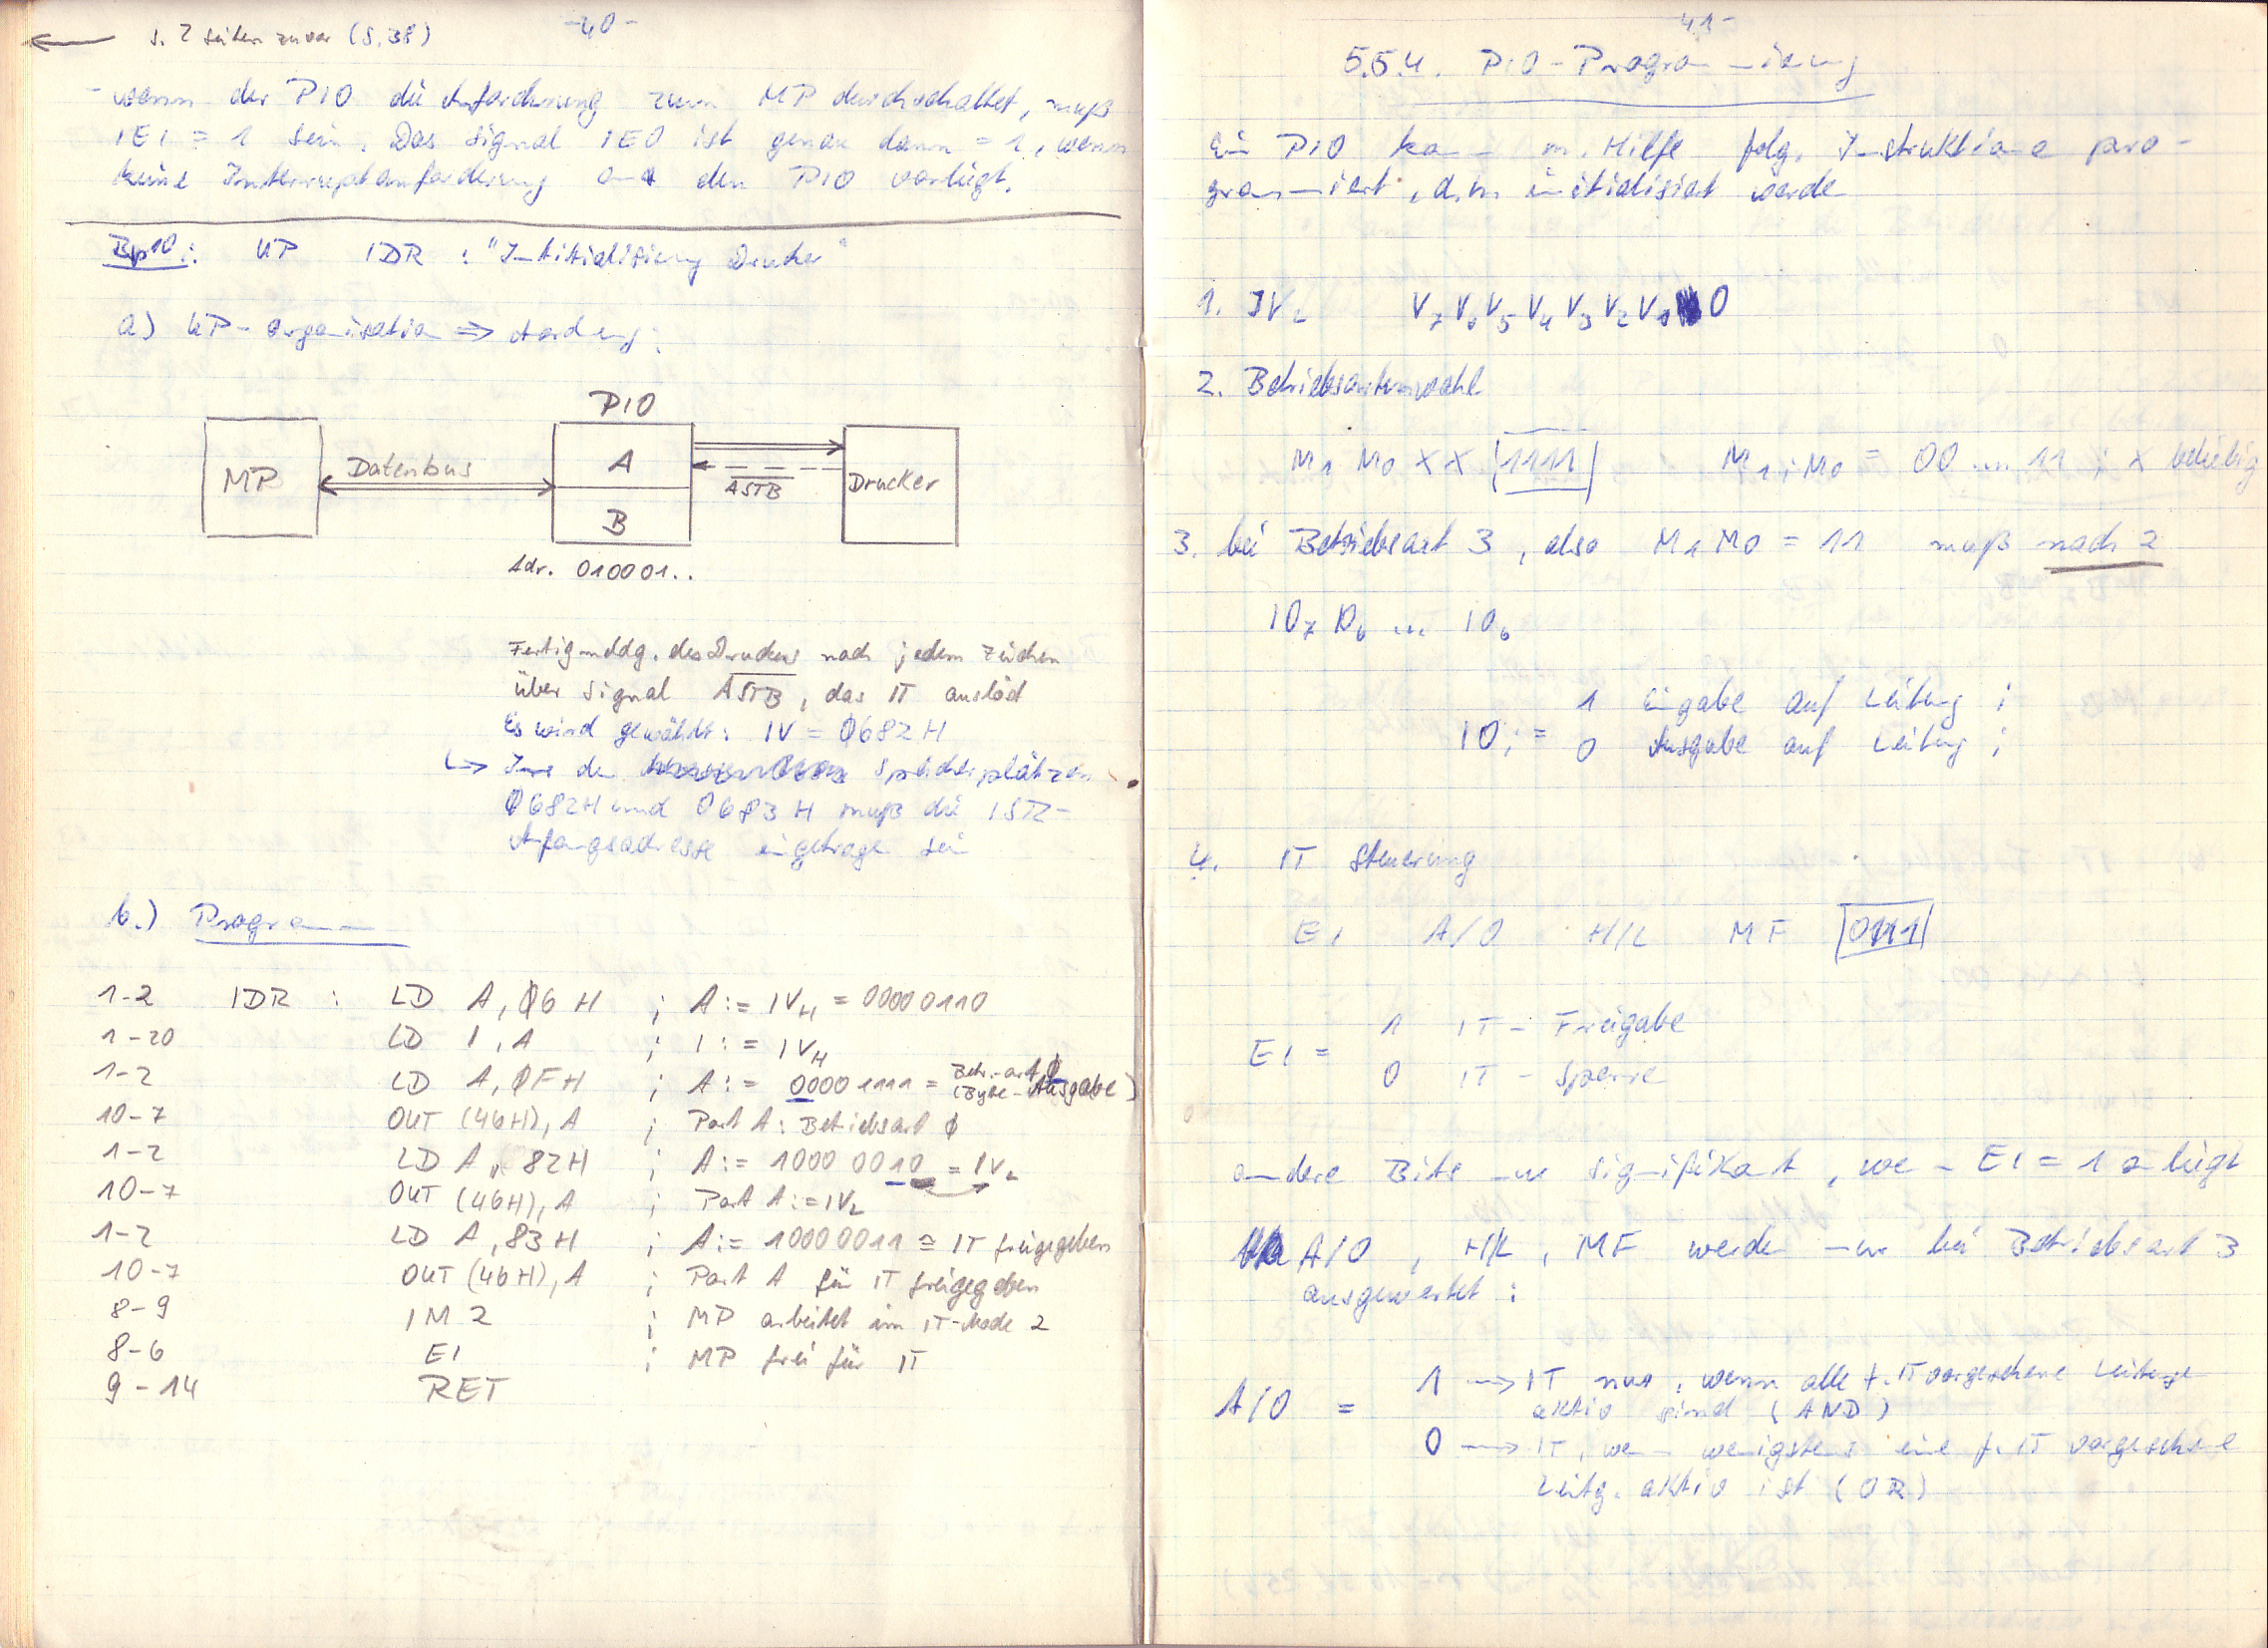 s. 2 Seiten zuvor (S. 38)
-40-
- wenn der PIO die Anforderung zum MP durchschaltet, muß
IEI = 1 sein. Das Signal IEO ist genau dann = 1, wenn
keine Interruptanforderung an den PIO vorliegt.
Bsp 10: UP IDR : "Initialisierung Drucker"
a) UP-Organisation ⇒
PIO
MP
Datenbus
A
B
ASTB
Drucker
Adr. 010001..
Fertigmeldg. des Druckers nach jedem Zeichen
über Signal ASTB, das IT auslöst
Es wird gewählt: IV = 0682H
↳ den Speicherplätzen
0682H und 0683H muß die ISR-
Anfangsadresse eingetragen sein
b.) Programm
1-2 IDR : LD A, 06H ; A := IVH = 00000110
1-20 LD I, A ; I := IVH
1-2 LD A, 0FH ; A := 00001111 = Betr.-art 0 (Byte-Ausgabe)
10-7 OUT (46H), A ; Port A: Betriebsart 0
1-2 LD A, 82H ; A := 1000 0010 = IVL
10-7 OUT (46H), A ; Port A := IVL
1-2 LD A, 83H ; A := 10000011 ≙ IT freigegeben
10-7 OUT (46H), A ; Port A für IT freigegeben
8-9 IM 2 ; MP arbeitet im IT-Mode 2
8-6 EI ; MP frei für IT
9-14 RET
-41-
5.5.4. PIO-Programmierung
Ein PIO kann m. Hilfe folg. Instruktionen pro-
grammiert, d.h. initialisiert werden
1. IVL V7 V6 V5 V4 V3 V2 V1 0
2. Betriebsartenwahl
M1 M0 X X |1111| M1, M0 = 00 ... 11 ; x beliebig
3. bei Betriebsart 3, also M1 M0 = 11 muß nach 2
IO7 IO6 ... IO0
1 Eingabe auf Leitung i
IOi =
0 Ausgabe auf Leitung i
4. IT Steuerung
EI A/O H/L MF |0111|
1 IT - Freigabe
EI =
0 IT - Sperre
andere Bits nur signifikant, wenn EI = 1 anliegt
A/O, H/L, MF werden nur bei Betriebsart 3
ausgewertet:
1 → IT nur, wenn alle f. IT vorgesehene Leitungen
aktiv sind (AND)
A/O =
0 → IT, wenn wenigstens eine f. IT vorgesehene
Leitg. aktiv ist (OR)